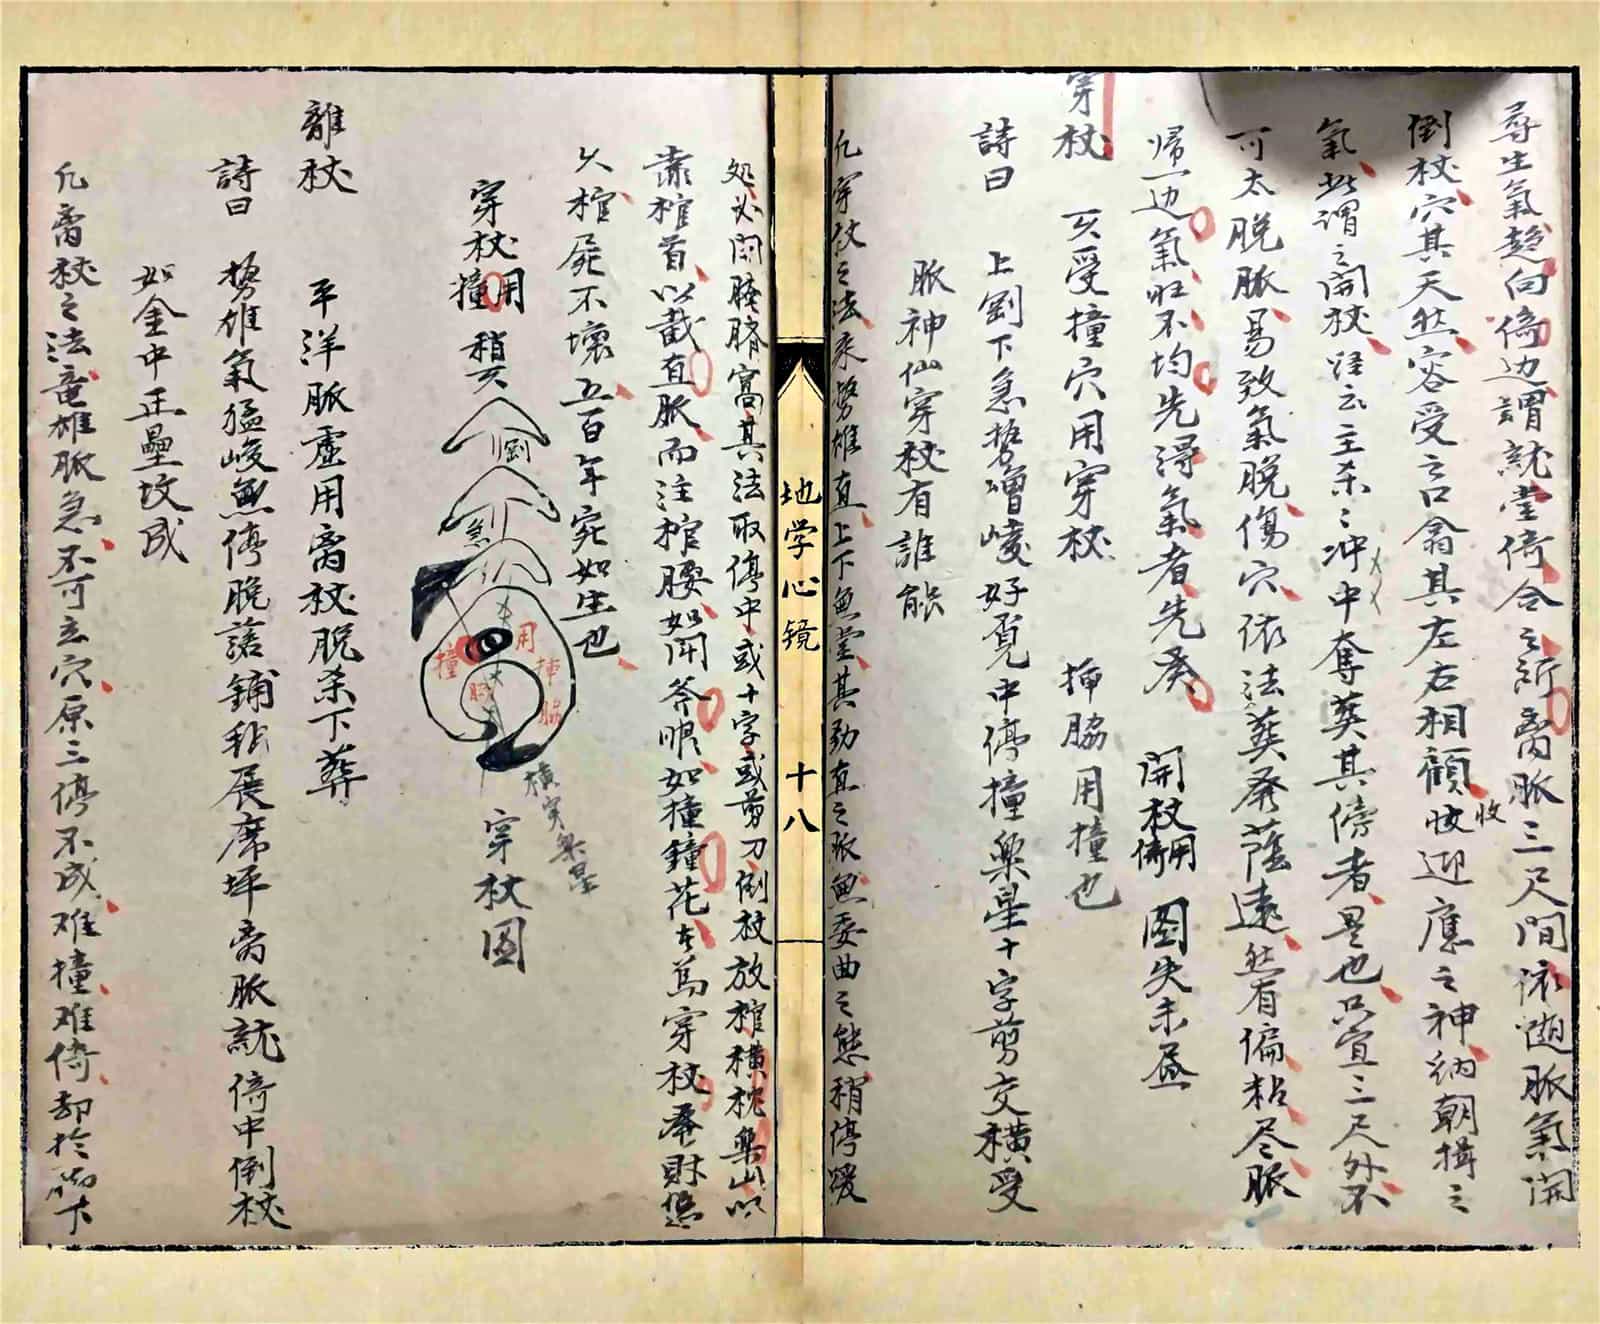 尋生氣趋向倚边謂就堂倚合之所离脈三尺間依随脈氣開
倒杖穴其天然容受之口翕其左右相顧收迎應之神納朝揖之
收
氣此謂之開杖雖云主杀冲中奪葬其傍者是也只宜三尺外不
可太脱脈易致氣脱傷穴依法葬発蔭遠然有偏粘尽脈
帰一边氣旺不均先淂氣者先発 開杖倚用 图失未画
穿杖 又受撞穴用穿杖 挿脇用撞也
詩曰 上劉下急势嶒崚好覓中停撞樂星十字剪交横受
脈神仙穿杖有誰能
凢穿杖之法来势雄直上下無堂其劲直之脈無委曲之態稍停緩
处必開腰臍窩其法取停中或十字或剪刀倒杖放棺横枕樂山以
靠棺首以截直脈而注棺腰如開斧眼如撞鐘花故為穿杖奉財悠
久棺屍不壞五百年宛如生也
穿杖撞用 稍又
劉
急
用
撞
挿
脇
横穿樂星
穿杖图
離杖 平洋脈虚用离杖脱杀下葬
詩曰 势雄氣猛峻無停脱落鋪毡展席坪离脈就倚中倒杖
如金中正壘坟成
凢离杖之法竜雄脈急不可立穴原三停不成难撞难倚却扵脚下
地学心镜
十八